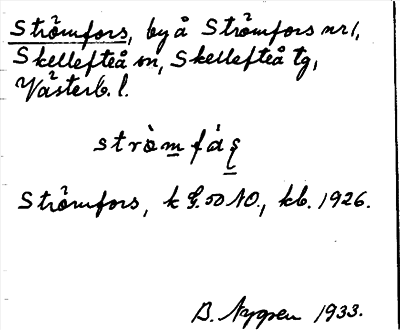 Strömfors, by å Strömfors nr 1,
Skellefteå sn, Skellefteå tg,
Västerb. l.
stròm fás̨
Strömfors, k G. 50 NO., kb. 1926.
B. Nygren 1933.